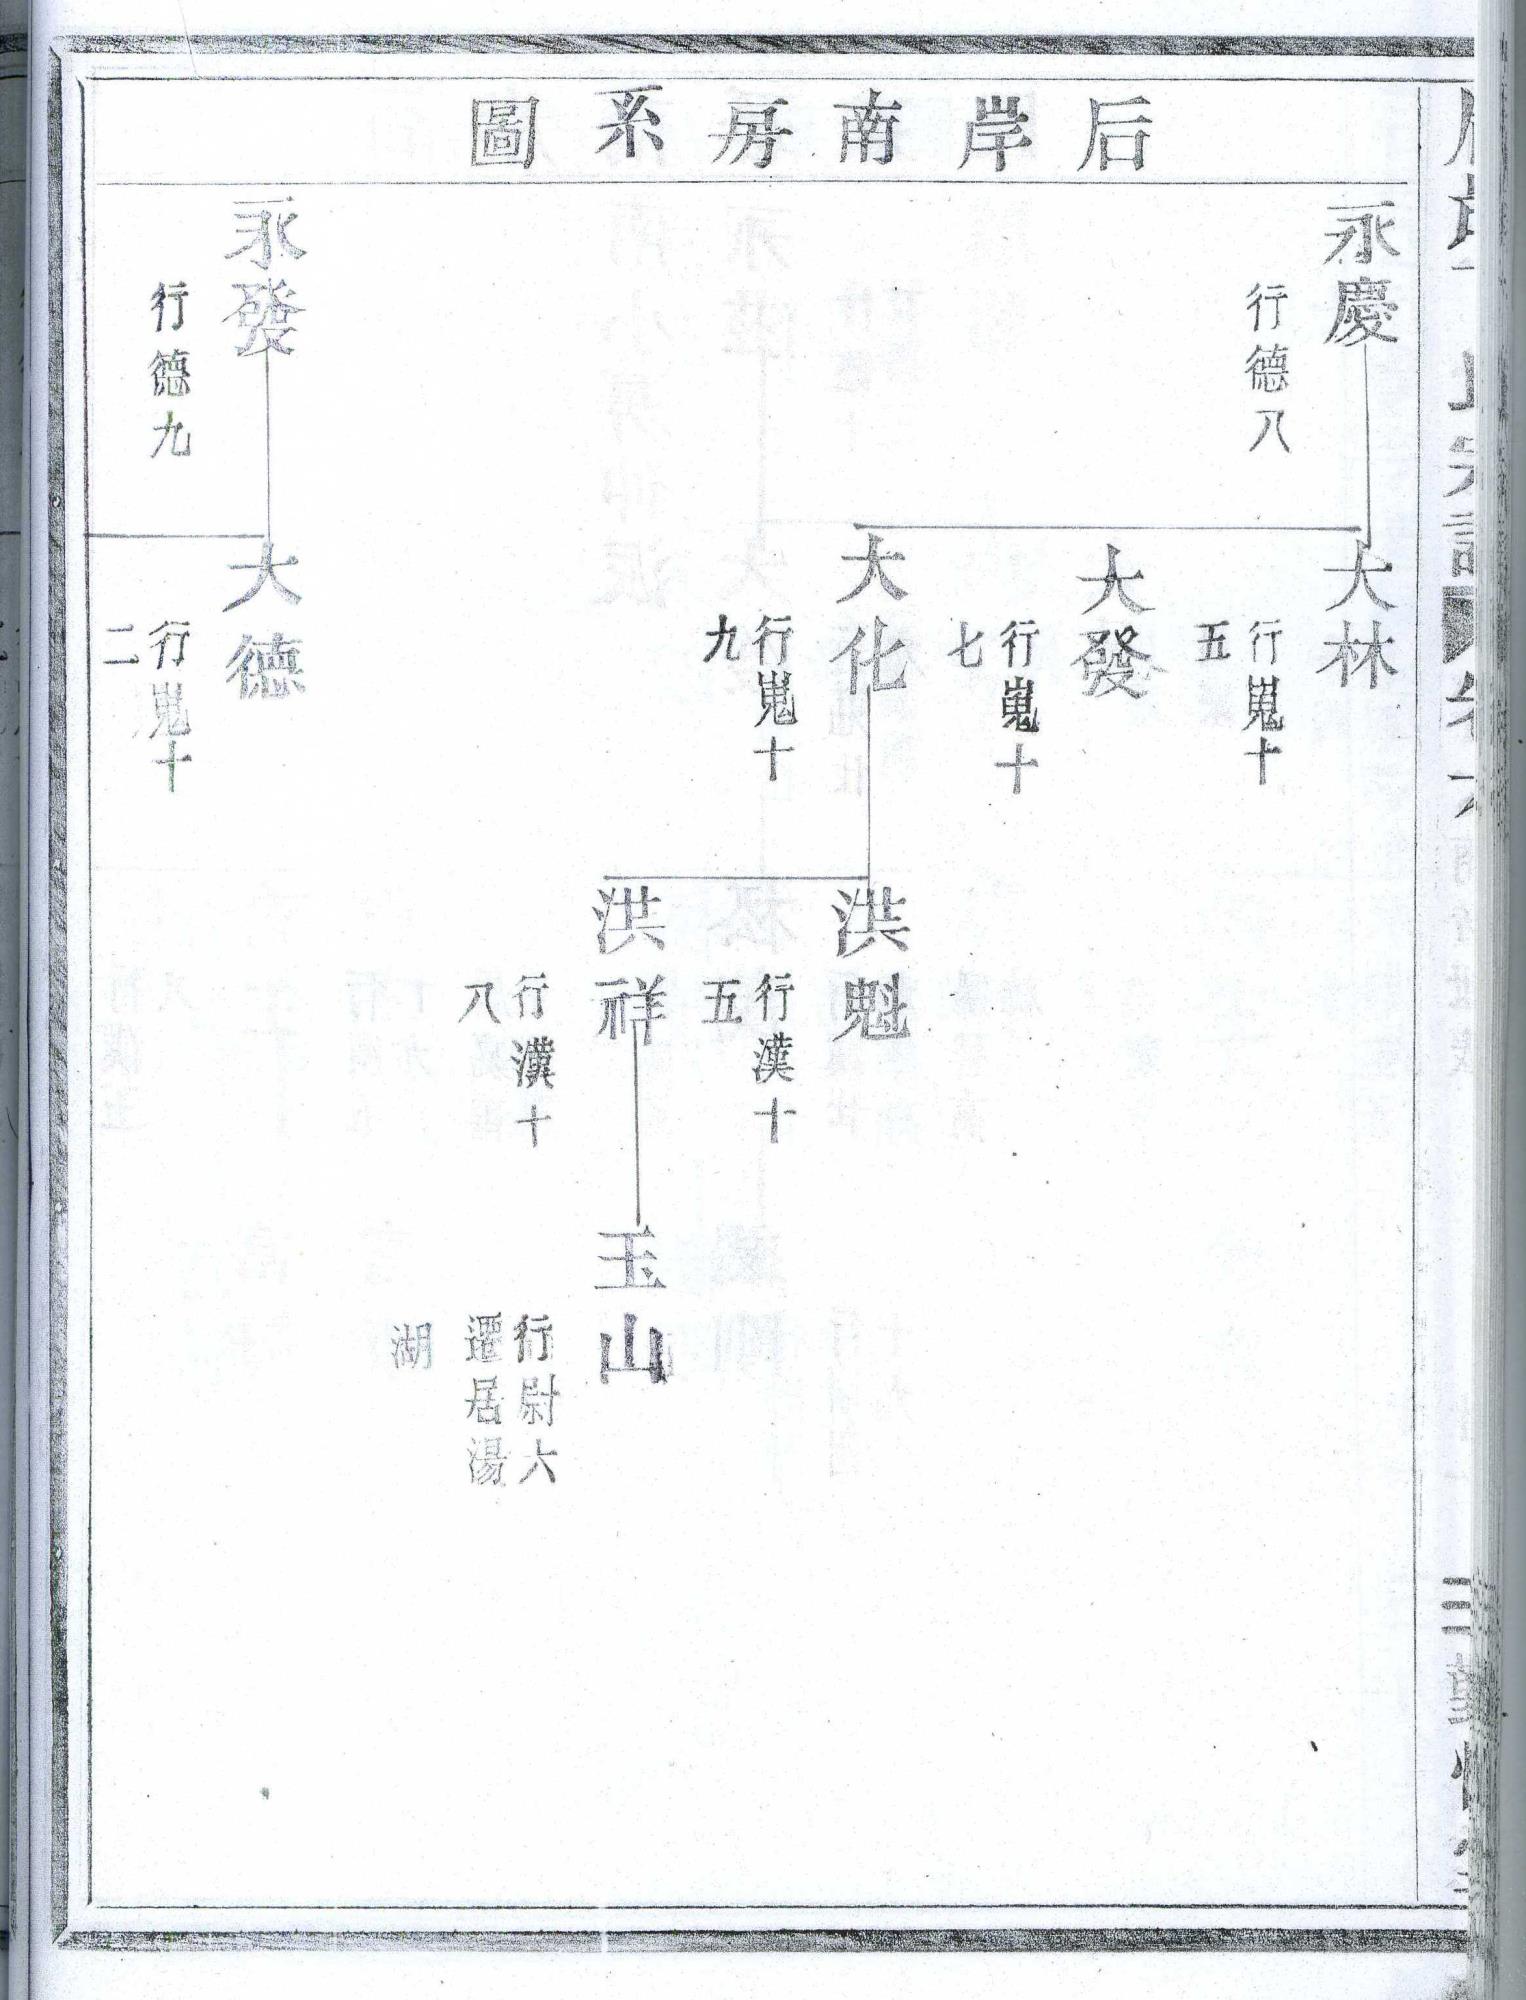 后岸南房系圖
永慶
行德八
大林
行嵬十
五
大發
行嵬十
七
大化
行嵬十
九
洪魁
行漢十
五
洪祥
行漢十
八
玉山
行尉六
遷居湯
湖
永發
行德九
大德
行嵬十
二